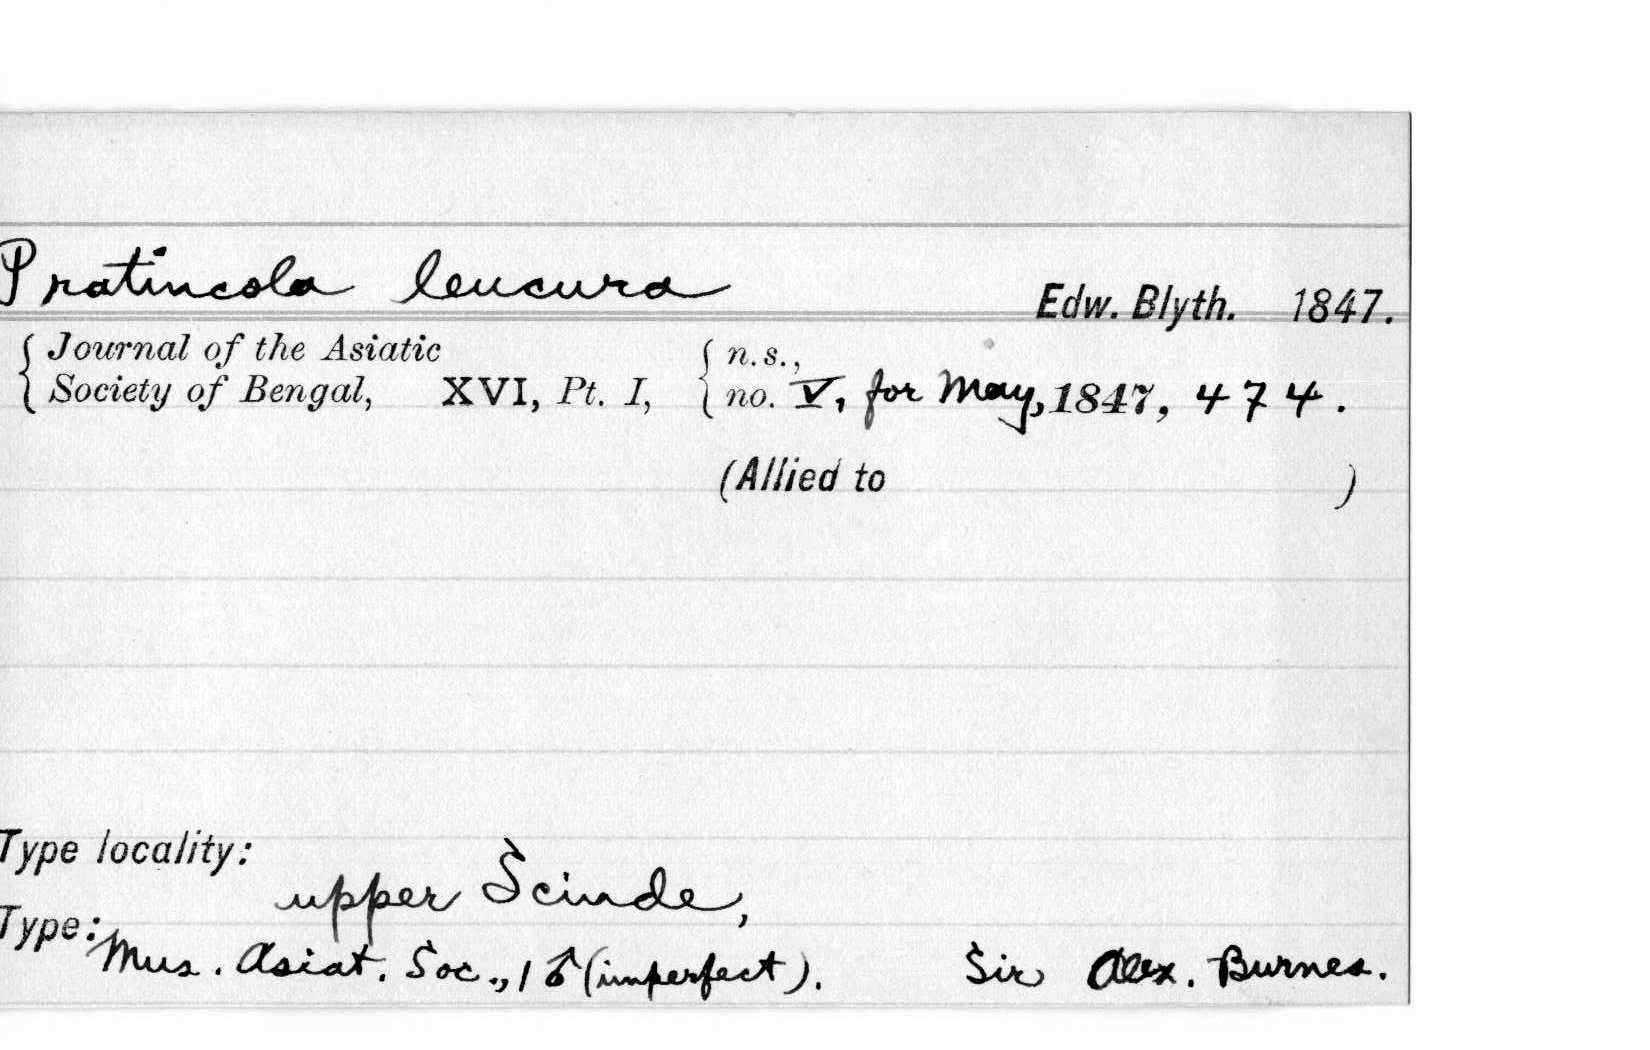 Pratincola leucura
Edw. Blyth. 1847.
{ Journal of the Asiatic { n.s.,
Society of Bengal, XVI, Pt. I, no. V, for May, 1847, 474.
(Allied to )
Type locality:
upper Scinde,
Type: Mus. Asiat. Soc., 1 ♂ (imperfect). Sir Alex. Burnes.